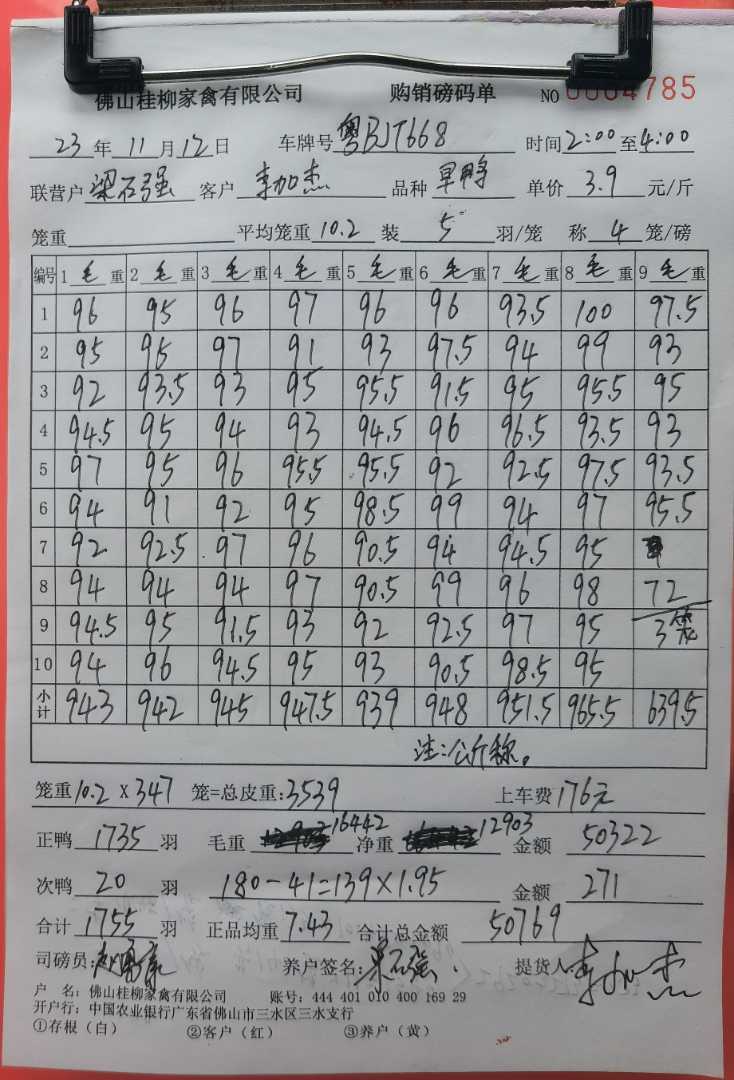 佛山桂柳家禽有限公司 购销磅码单 NO 0004785
23 年 11 月 12 日 车牌号 粤BJT668 时间 2:00 至 4:00
联营户 梁石强 客户 李加杰 品种 旱鸭 单价 3.9 元/斤
笼重 平均笼重 10.2 装 5 羽/笼 称 4 笼/磅
编号 1 毛 重 2 毛 重 3 毛 重 4 毛 重 5 毛 重 6 毛 重 7 毛 重 8 毛 重 9 毛 重
1 96 95 96 97 96 96 93.5 100 97.5
2 95 95 97 91 93 97.5 94 99 93
3 92 93.5 93 95 95.5 91.5 95 95.5 95
4 94.5 95 94 93 94.5 96 96.5 93.5 93
5 97 95 96 95.5 95.5 92 92.5 97.5 93.5
6 94 91 92 95 98.5 99 94 97 95.5
7 92 92.5 97 96 90.5 94 94.5 95
8 94 94 94 97 90.5 99 96 98 72
9 94.5 95 91.5 93 92 92.5 97 95 3笼
10 94 96 94.5 95 93 90.5 98.5 95
小计 943 942 945 947.5 939 948 951.5 965.5 639.5
注:公斤称。
笼重 10.2 x 347 笼=总皮重: 3539 上车费 176元
正鸭 1735 羽 毛重 16442 净重 12903 金额 50322
次鸭 20 羽 180-41=139×1.95 金额 271
合计 1755 羽 正品均重 7.43 合计总金额 50769
司磅员: 养户签名: 梁石强. 提货人: 李加杰
户 名: 佛山桂柳家禽有限公司 账号: 444 401 010 400 169 29
开户行: 中国农业银行广东省佛山市三水区三水支行
①存根（白） ②客户（红） ③养户（黄）